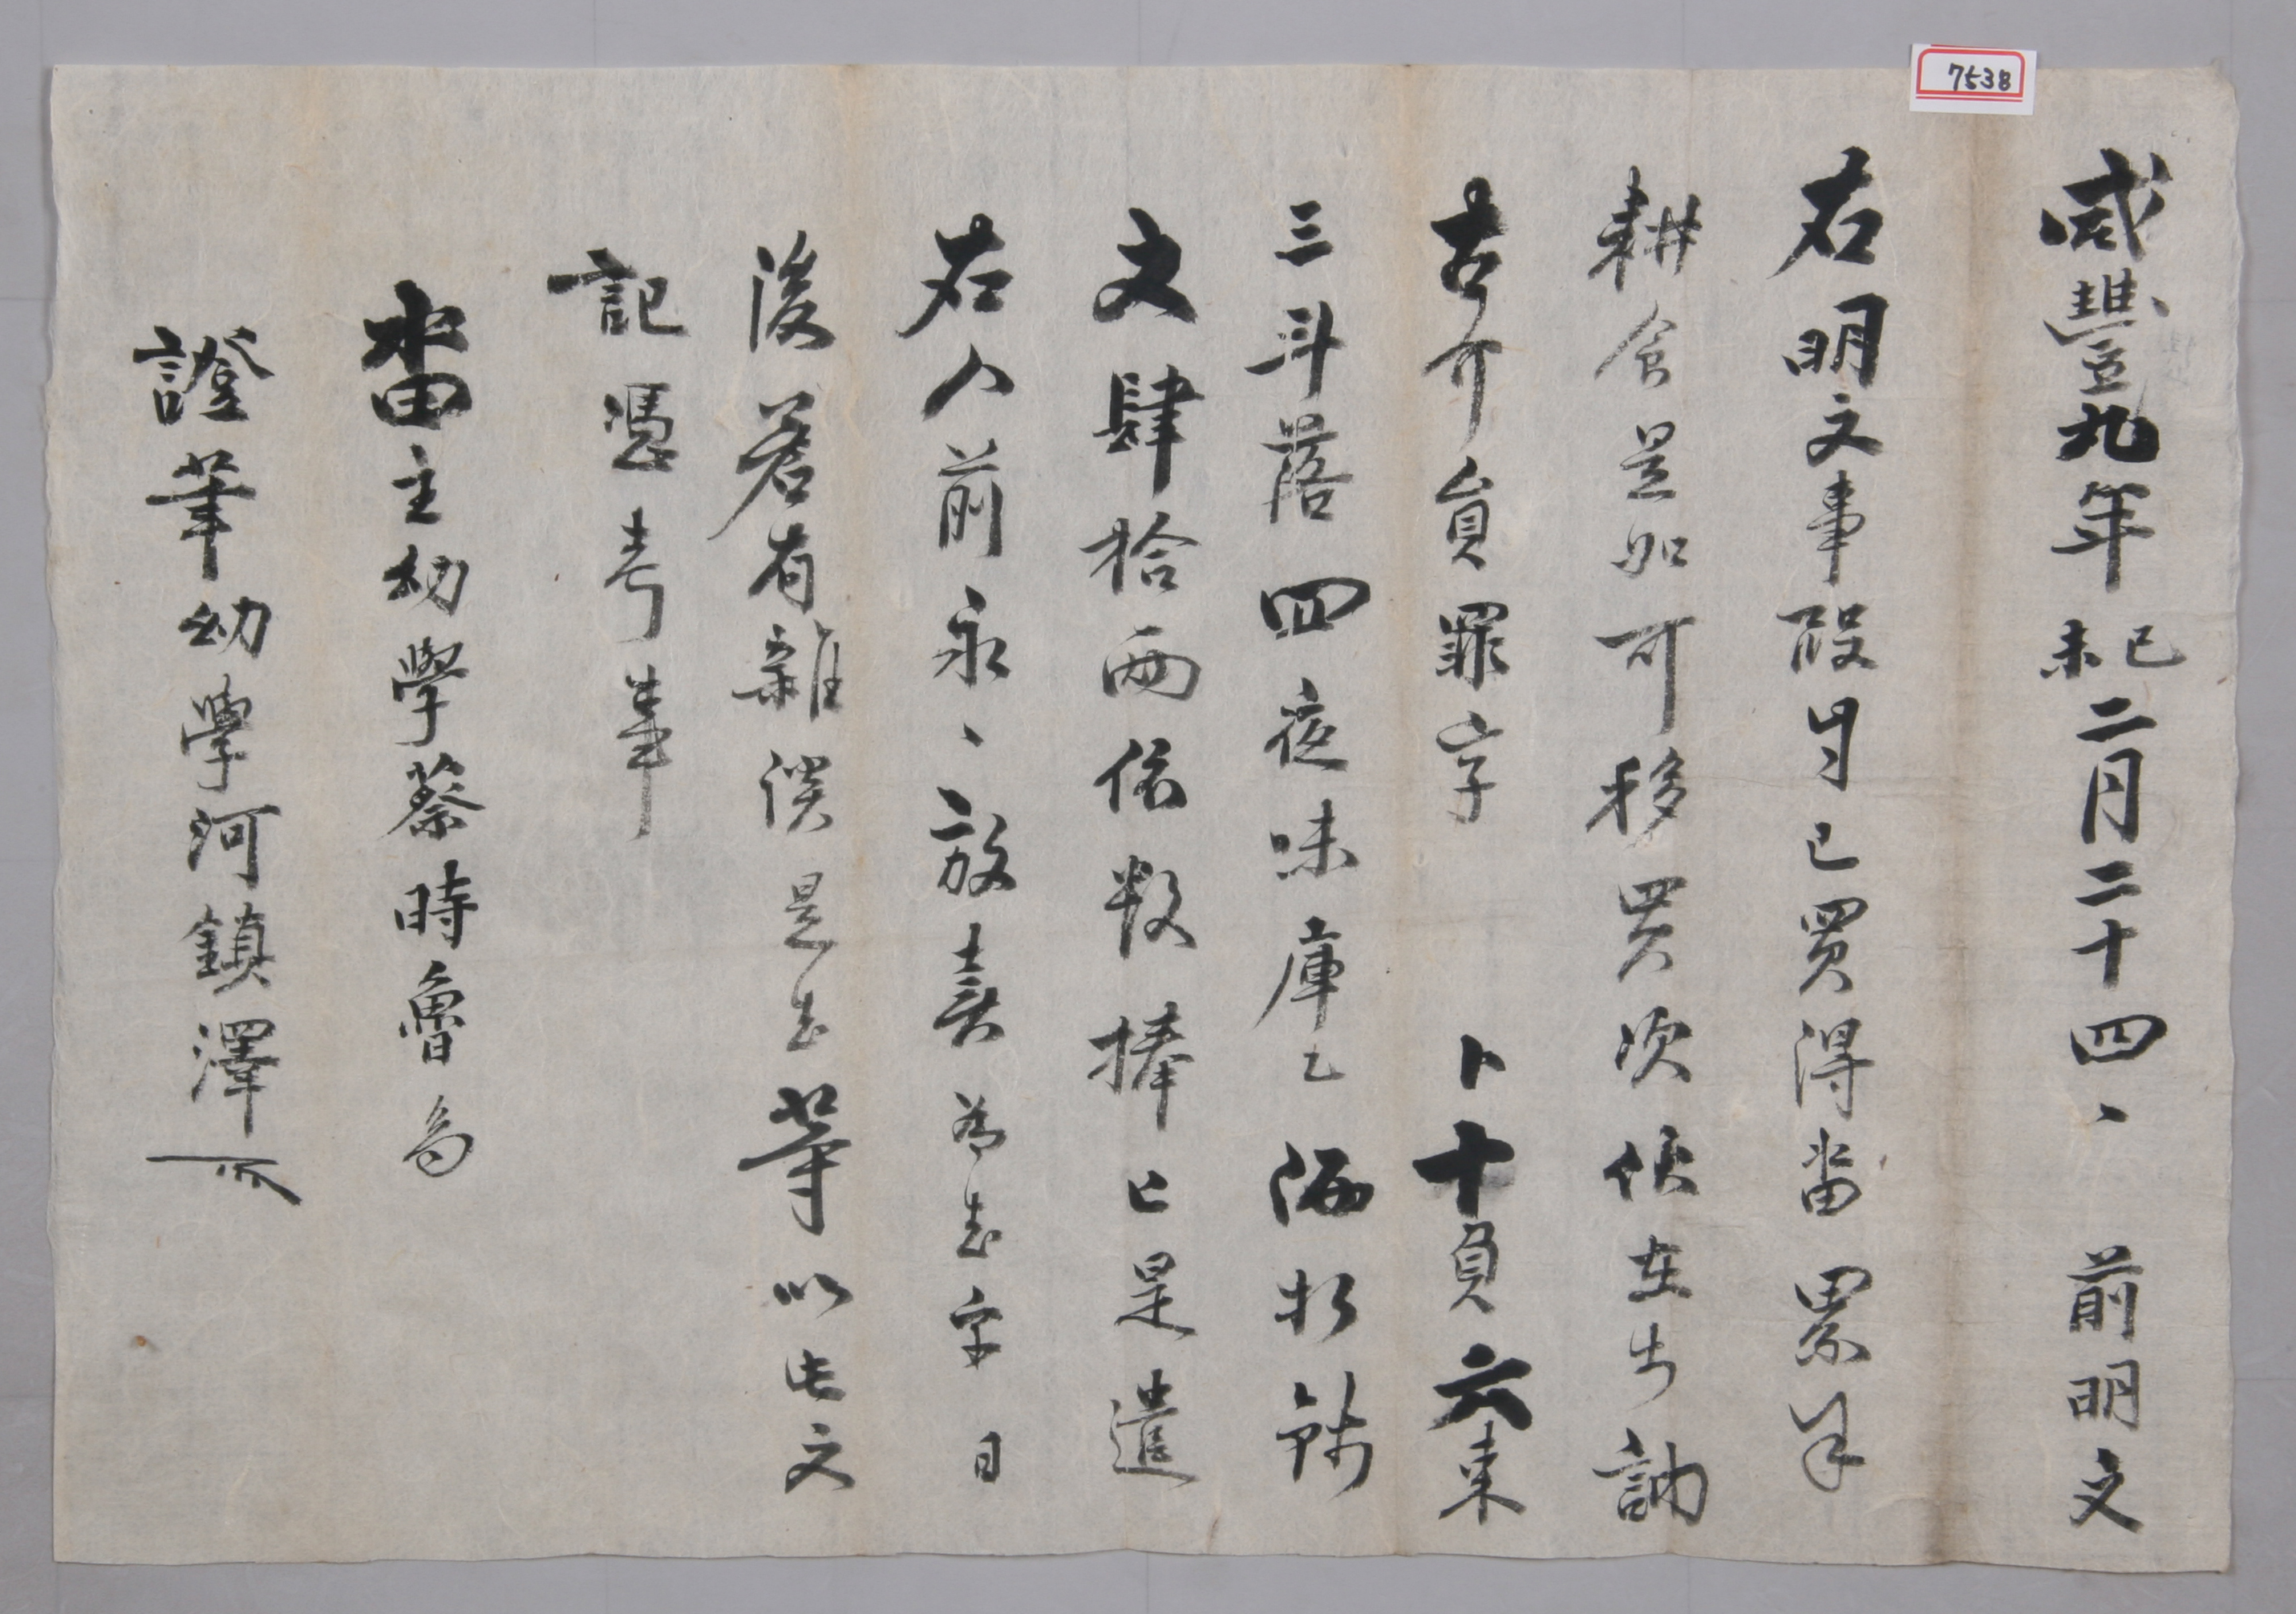 7538
咸豐九年己未二月二十四、 前明文
右明文事段自己買得畓累年
耕食是如可移買次伏在古訥
古介員罪字 卜十負六束
三斗落四夜味庫乙價折錢
文肆拾兩依數捧上是遣
右人前永、放賣為去乎日
後若有雜談是去等以此文
記憑考事
畓主幼學蔡時魯
證筆幼學河鎭澤